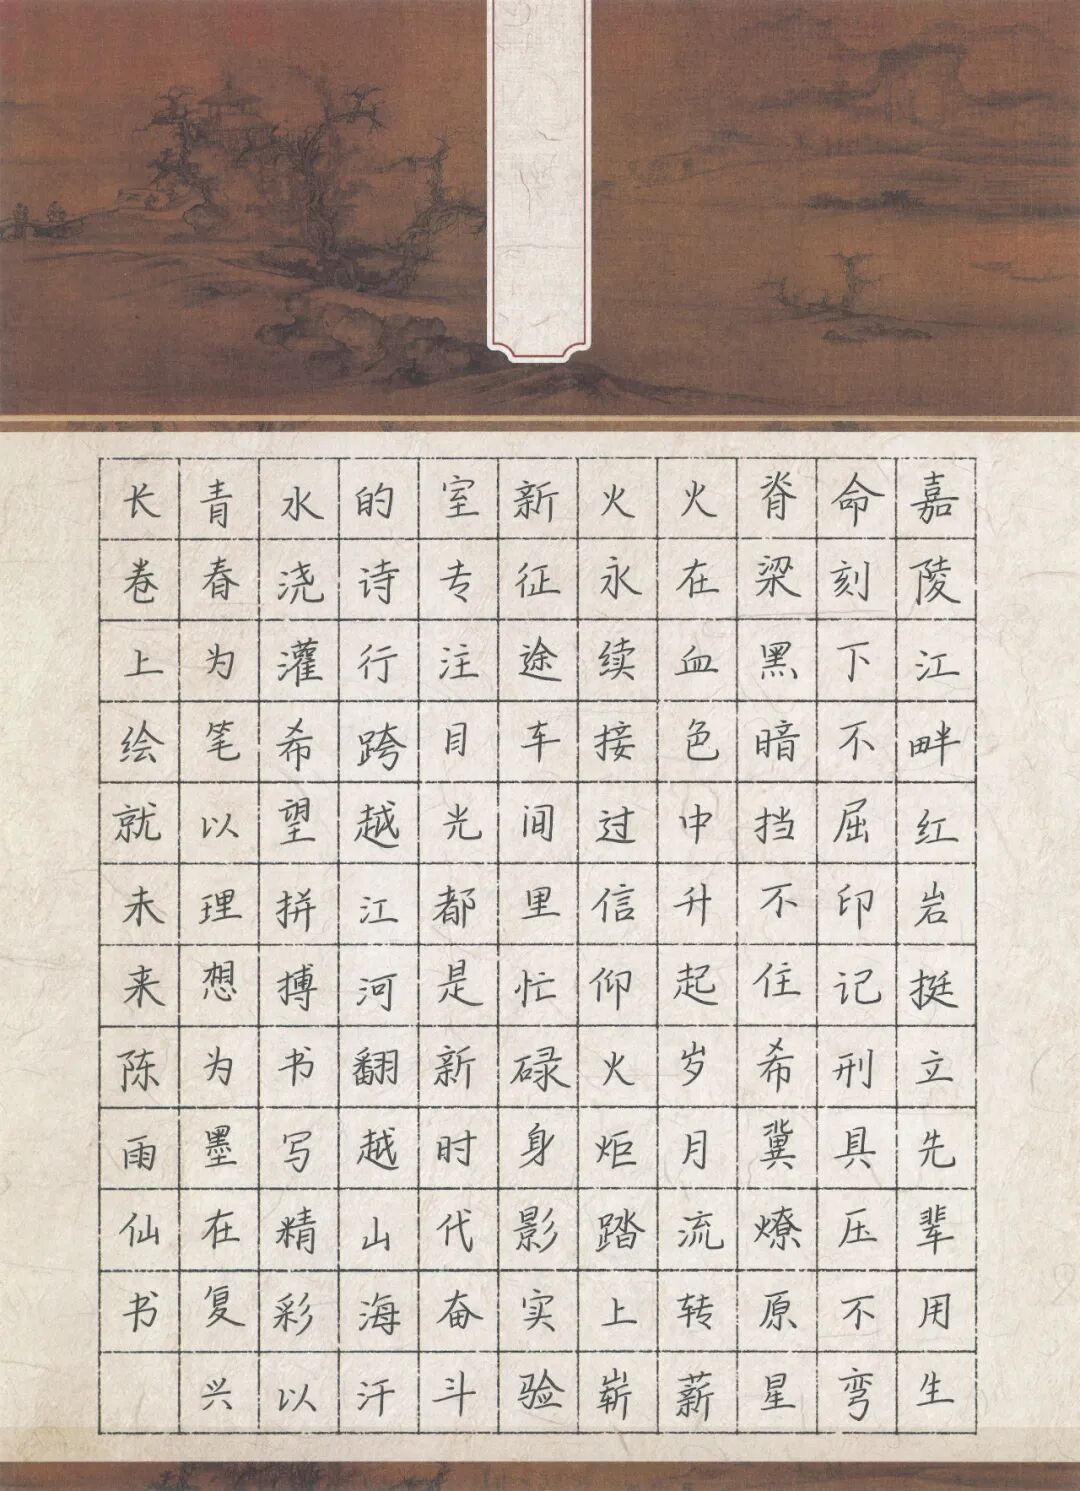 嘉陵江畔红岩挺立先辈用生
命刻下不屈印记刑具压不弯
脊梁黑暗挡不住希冀燎原星
火在血色中升起岁月流转薪
火永续接过信仰火炬踏上崭
新征途车间里忙碌身影实验
室专注目光都是新时代奋斗
的诗行跨越江河翻越山海汗
水浇灌希望拼搏书写精彩以
青春为笔以理想为墨在复兴
长卷上绘就未来陈雨仙书